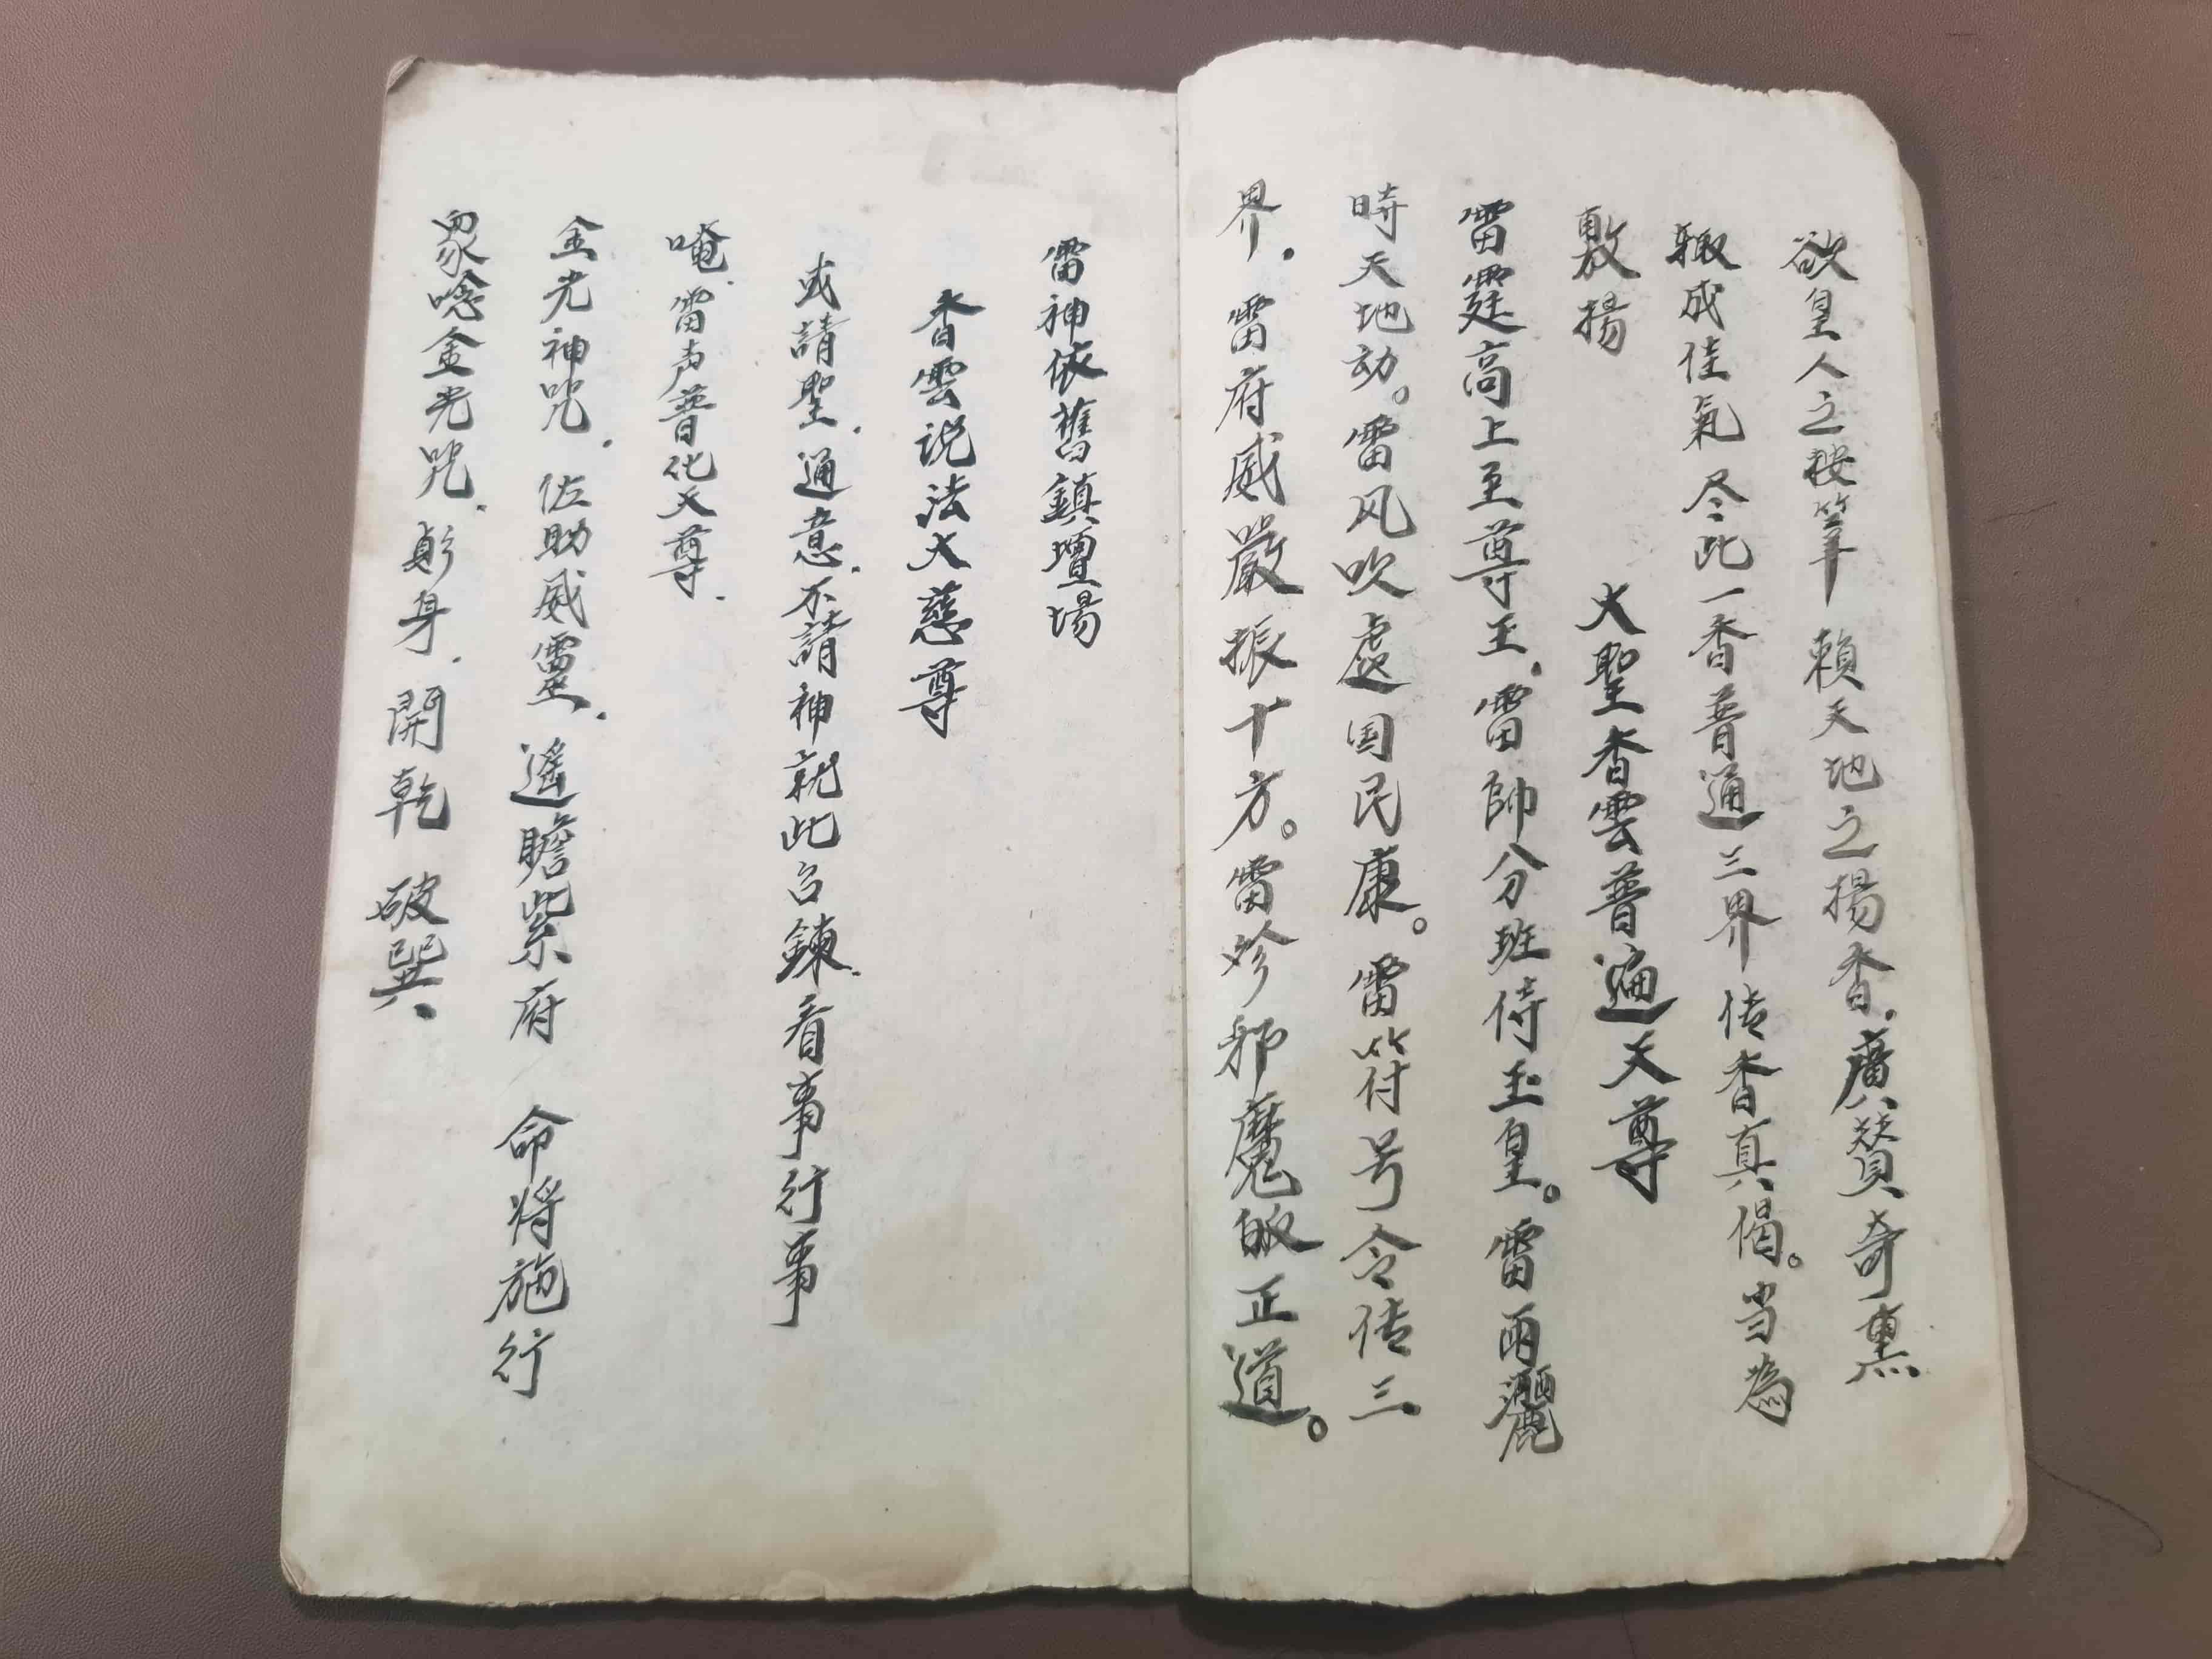 欲皇人之按笔 賴天地之揚香.廣贊奇熏
輙成佳氣尽此一香普通三界传香真偈。当為
敷揚 大聖香雲普遍天尊
雷霆高上至尊王.雷帥分班侍玉皇。雷雨灑
時天地动。雷风吹處国民康。雷符号令传三
界.雷府威嚴振十方。雷殄邪魔皈正道。
雷神依舊鎮壇場
香雲说法大慈尊
或請聖.通意.不請神就此召鍊.看事行事
唵.雷声普化天尊.
金光神咒.佐助威靈.遥瞻紫府 命将施行
眾唸金光咒.躬身.開乾 破巽